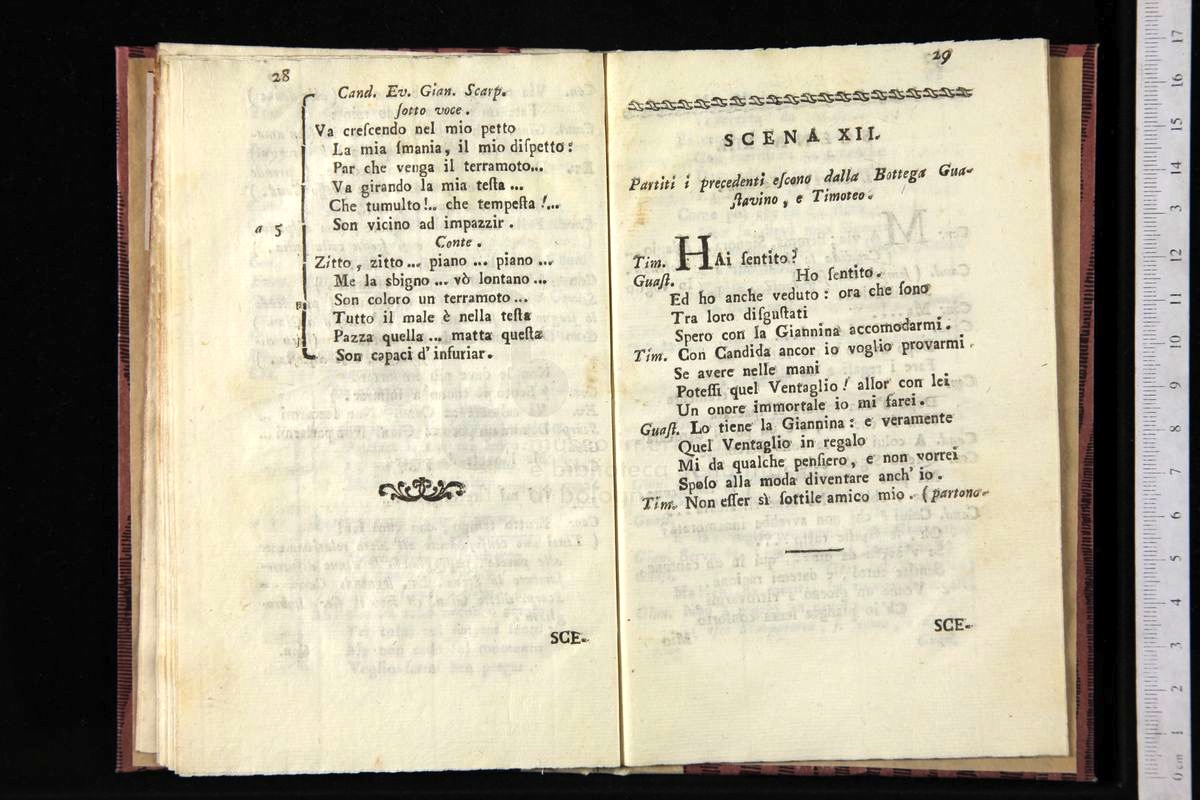 28
Cand. Ev. Gian. Scarp.
ſotto voce.
Va creſcendo nel mio petto
La mia ſmania, il mio diſpetto:
Par che venga il terramoto...
Va girando la mia teſta ...
Che tumulto!.. che tempeſta!...
a 5 Son vicino ad impazzir.
Conte.
Zitto, zitto ... piano ... piano ...
Me la sbigno ... vò lontano ...
Son coloro un terramoto ...
Tutto il male è nella teſta
Pazza quella ... matta queſta
Son capaci d' infuriar.
SCE-
29
SCENA XII.
Partiti i precedenti eſcono dalla Bottega Gua-
ſtavino, e Timoteo.
Tim. HAi ſentito?
Guaſt. Ho ſentito.
Ed ho anche veduto: ora che ſono
Tra loro diſguſtati
Spero con la Giannina accomodarmi.
Tim. Con Candida ancor io voglio provarmi.
Se avere nelle mani
Poteſſi quel Ventaglio! allor con lei
Un onore immortale io mi farei.
Guaſt. Lo tiene la Giannina: e veramente
Quel Ventaglio in regalo
Mi da qualche penſiero, e non vorrei
Spoſo alla moda diventare anch' io.
Tim. Non eſſer sì ſottile amico mio. (partono.
SCE-
0 cm 1 2 3 4 5 6 7 8 9 10 11 12 13 14 15 16 17